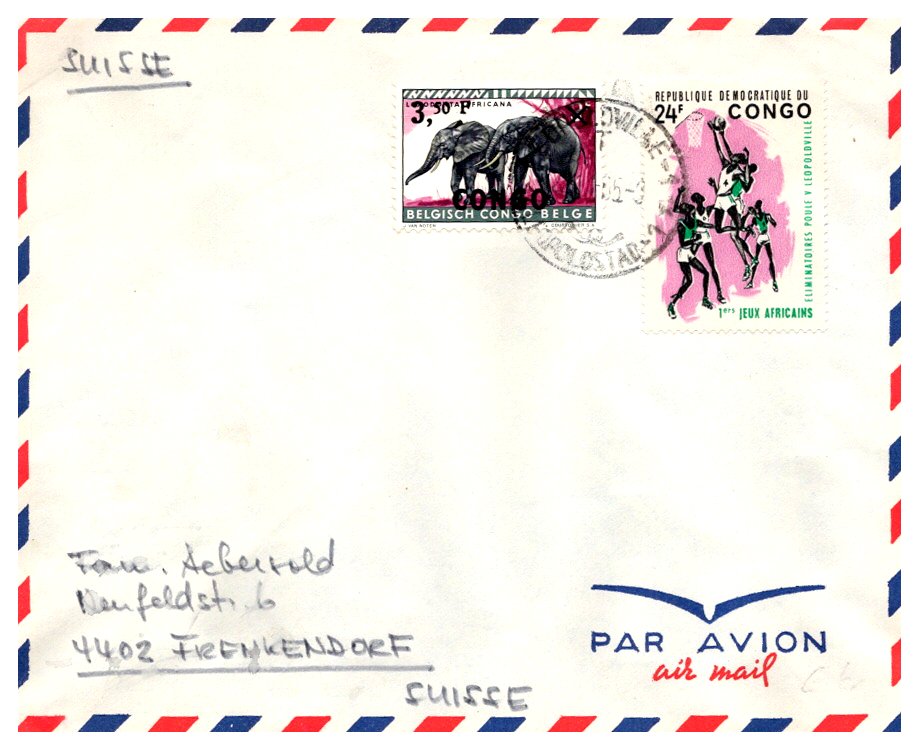 SUISSE
LOXODONTA AFRICANA
3,50 F
CONGO
BELGISCH CONGO BELGE
J. VAN NOTEN
COURVOISIER S.A.
LEOPOLDVILLE-1
LEOPOLDSTAD-1
REPUBLIQUE DEMOCRATIQUE DU
24F CONGO
ELIMINATOIRES POULE V LEOPOLDVILLE
1ers JEUX AFRICAINS
Fam. Aebersold
Neufeldstr. 6
4402 FRENKENDORF
SUISSE
PAR AVION
air mail